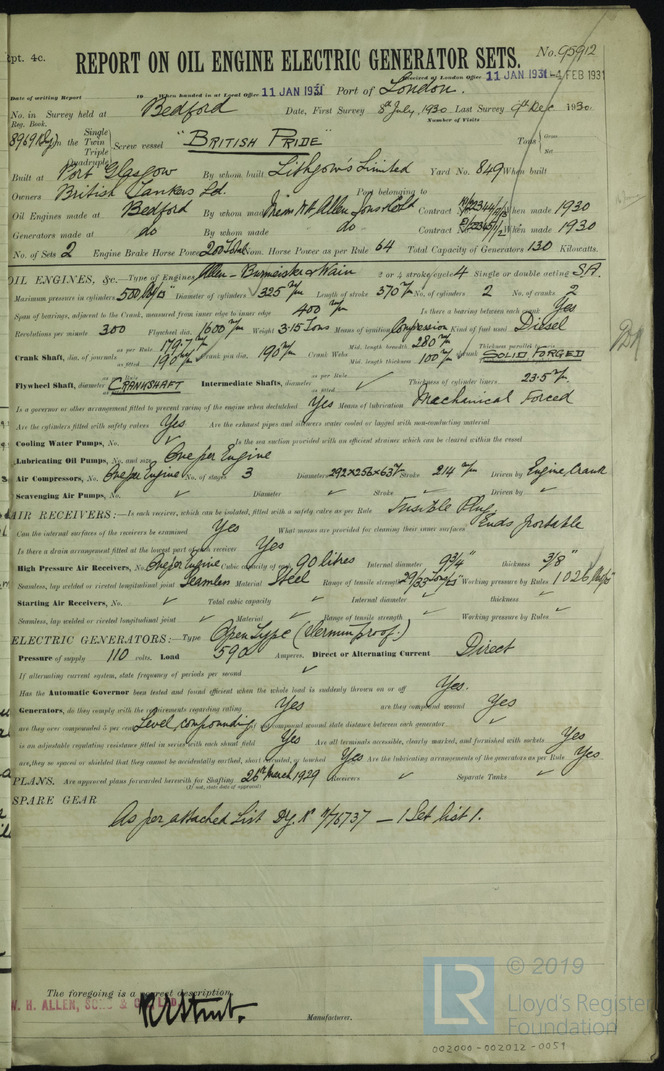 Rpt. 4c.
REPORT ON OIL ENGINE ELECTRIC GENERATOR SETS.
No. 95912
Received at London Office 11 JAN 1931 -4 FEB 1931
Date of writing Report 19 When handed in at Local Office 11 JAN 1931 Port of London.
No. in Survey held at Bedford Date, First Survey 8th July, 1930 Last Survey 9th Dec 1930
Reg. Book. Number of Visits
Single
on the Twin Screw vessel "BRITISH PRIDE" Tons Gross Net
Triple
Quadruple
Built at Port Glasgow By whom built Lithgow's Limited Yard No. 849 When built
Owners British Tankers Ld. Port belonging to
Oil Engines made at Bedford By whom made Messrs W.H. Allen Sons & Co Ld Contract When made 1930
Generators made at do By whom made do Contract When made 1930
No. of Sets 2 Engine Brake Horse Power 200 Nom. Horse Power as per Rule 64 Total Capacity of Generators 130 Kilowatts.
OIL ENGINES, &c.—Type of Engines Allen - Burmeister & Wain 2 or 4 stroke cycle 4 Single or double acting S.A.
Maximum pressure in cylinders 500 lbs/□" Diameter of cylinders 325 m/m Length of stroke 370 m/m No. of cylinders 2 No. of cranks 2
Span of bearings, adjacent to the Crank, measured from inner edge to inner edge 400 m/m Is there a bearing between each crank Yes
Revolutions per minute 300 Flywheel dia. 1600 m/m Weight 3.15 Tons Means of ignition Compression Kind of fuel used Diesel
Crank Shaft, dia. of journals as per Rule 179.7 m/m as fitted 190 m/m Crank pin dia. 190 m/m Crank Webs Mid. length breadth 280 m/m Mid. length thickness 100 m/m shrunk SOLID FORGED
Flywheel Shaft, diameter CRANKSHAFT Intermediate Shafts, diameter as per Rule as fitted Thickness of cylinder liners 23.5 m/m
Is a governor or other arrangement fitted to prevent racing of the engine when declutched Yes Means of lubrication Mechanical Forced
Are the cylinders fitted with safety valves Yes Are the exhaust pipes and silencers water cooled or lagged with non-conducting material
Cooling Water Pumps, No. Is the sea suction provided with an efficient strainer which can be cleared within the vessel
Lubricating Oil Pumps, No. and size One per Engine
Air Compressors, No. One per Engine No. of stages 3 Diameters 292 x 258 x 63 m/m Stroke 214 m/m Driven by Engine Crank
Scavenging Air Pumps, No. Diameter Stroke Driven by
AIR RECEIVERS:—Is each receiver, which can be isolated, fitted with a safety valve as per Rule Fusible Plug
Can the internal surfaces of the receivers be examined Yes What means are provided for cleaning their inner surfaces Ends portable
Is there a drain arrangement fitted at the lowest part of each receiver Yes
High Pressure Air Receivers, No. One per Engine Cubic capacity of each 90 litres Internal diameter 9 3/4" thickness 3/8"
Seamless, lap welded or riveted longitudinal joint Seamless Material Steel Range of tensile strength Working pressure by Rules 1026 lbs/□"
Starting Air Receivers, No. Total cubic capacity Internal diameter thickness
Seamless, lap welded or riveted longitudinal joint Material Range of tensile strength Working pressure by Rules
ELECTRIC GENERATORS:—Type Open Type (Vermin proof.)
Pressure of supply 110 volts. Load 590 Amperes. Direct or Alternating Current Direct
If alternating current system, state frequency of periods per second
Has the Automatic Governor been tested and found efficient when the whole load is suddenly thrown on or off Yes.
Generators, do they comply with the requirements regarding rating Yes are they compound wound Yes
are they over compounded 5 per cent. Level compounding if not compound wound state distance between each generator
is an adjustable regulating resistance fitted in series with each shunt field Yes Are all terminals accessible, clearly marked, and furnished with sockets Yes
are they so spaced or shielded that they cannot be accidentally earthed, short circuited, or touched Yes Are the lubricating arrangements of the generators as per Rule Yes
PLANS. Are approved plans forwarded herewith for Shafting 26th March 1929 Receivers Separate Tanks
(If not, state date of approval)
SPARE GEAR
As per attached List — 1 Set list 1.
The foregoing is a correct description,
W. H. ALLEN, SONS & CO. LTD.
Manufacturer.
LR © 2019
Lloyd's Register
Foundation
002000-002012-0059